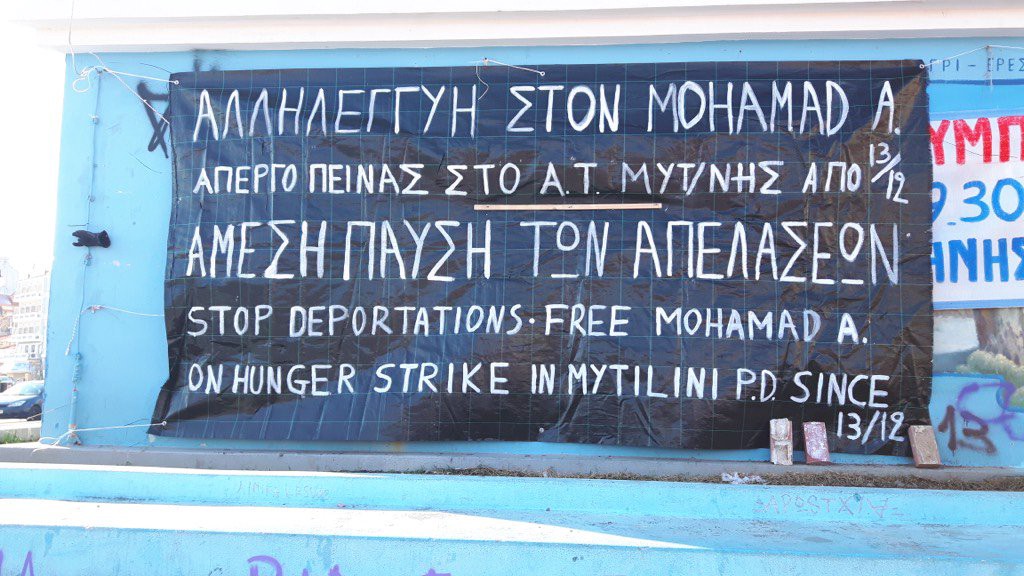 ΑΛΛΗΛΕΓΓΥΗ ΣΤΟΝ MOHAMAD A.
ΑΠΕΡΓΟ ΠΕΙΝΑΣ ΣΤΟ Α.Τ. ΜΥΤ/ΝΗΣ ΑΠΟ 13/12
ΑΜΕΣΗ ΠΑΥΣΗ ΤΩΝ ΑΠΕΛΑΣΕΩΝ
STOP DEPORTATIONS · FREE MOHAMAD A.
ON HUNGER STRIKE IN MYTILINI P.D. SINCE
13/12
9.30
13